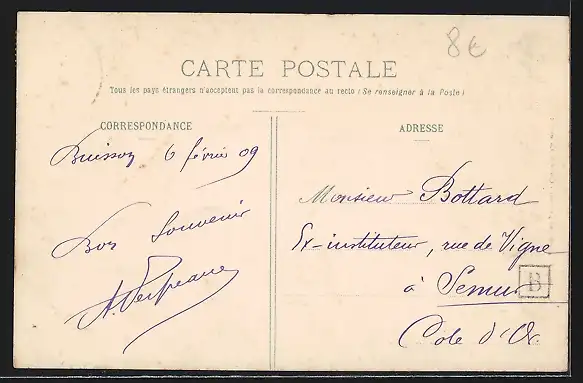 8€
CARTE POSTALE
Tous les pays étrangers n'acceptent pas la correspondance au recto (Se renseigner à la Poste)
CORRESPONDANCE
ADRESSE
6 février 09
Bon Souvenir
Monsieur Bottard
Ex-instituteur, rue de Vigne
à Semur
B
Côte d'Or